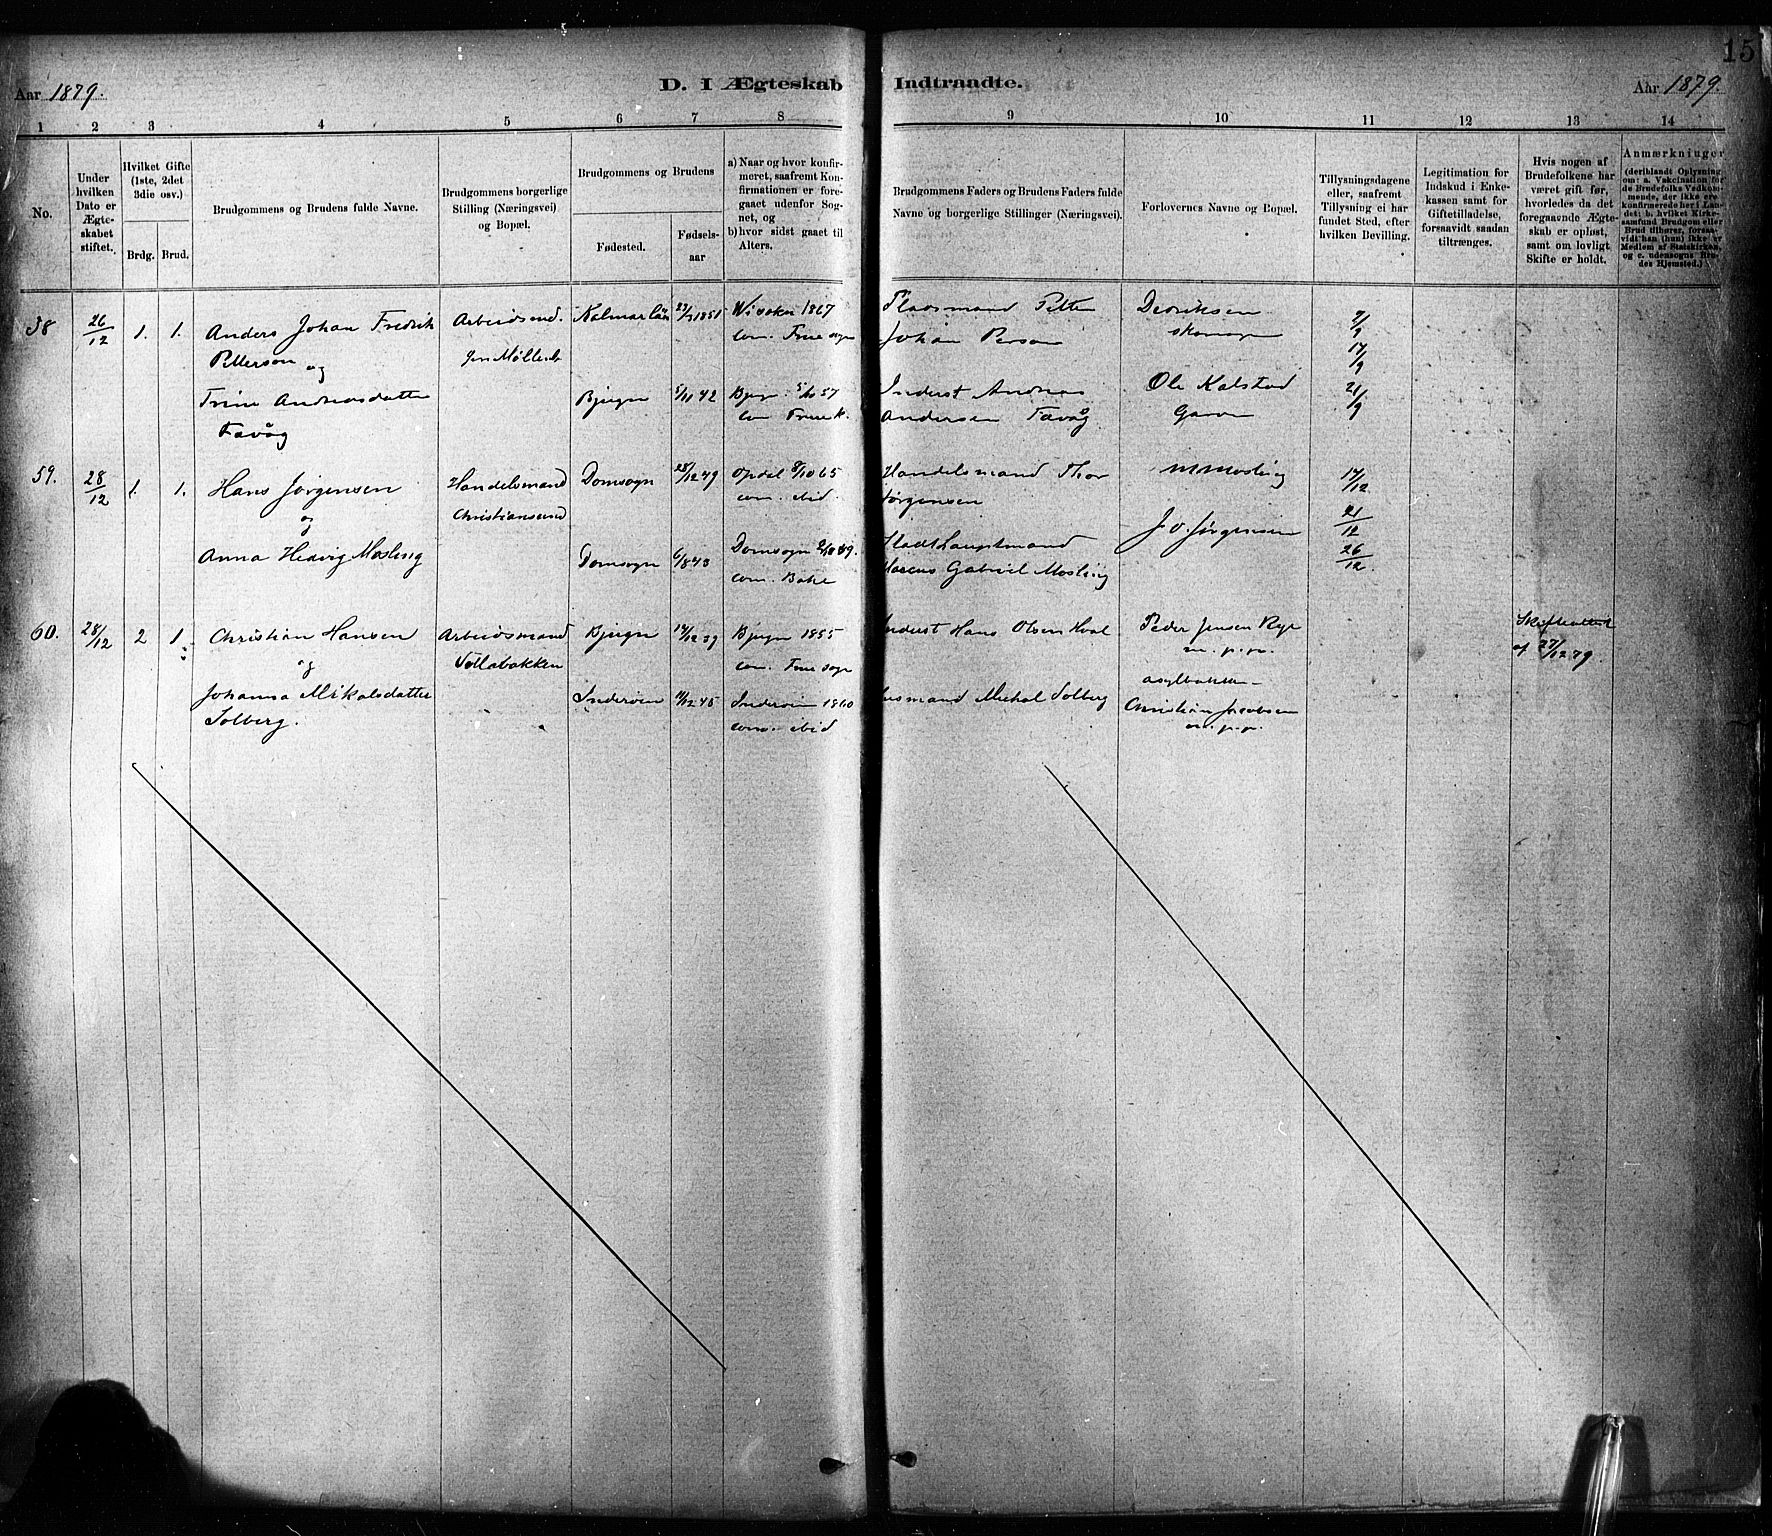 15
Aar 1879.
D. I Ægteskab Indtraadte.
Aar 1879.
1 2 3 4 5 6 7 8 9 10 11 12 13 14
No.
Under hvilken Dato er Ægteskabet stiftet.
Hvilket Gifte (1ste, 2det 3die osv.)
Brdg. Brud.
Brudgommens og Brudens fulde Navne.
Brudgommens borgerlige Stilling (Næringsvei) og Bopæl.
Brudgommens og Brudens
Fødested.
Fødselsaar
a) Naar og hvor konfirmeret, saafremt Konfirmationen er foregaaet udenfor Sognet, og
b) hvor sidst gaaet til Alters.
Brudgommens Faders og Brudens Faders fulde Navne og borgerlige Stillinger (Næringsvei).
Forlovernes Navne og Bopæl.
Tillysningsdagene eller, saafremt Tillysning ei har fundet Sted, efter hvilken Bevilling.
Legitimation for Indskud i Enkekassen samt for Giftetilladelse, forsaavidt saadan tiltrænges.
Hvis nogen af Brudefolkene har været gift før, hvorledes da det foregaaende Ægteskab er opløst, samt om lovligt Skifte er holdt.
Anmærkninger (deriblandt Oplysning om: a. Vakcination for de Brudefolks Vedkommende, der ikke ere konfirmerede her i Landet; b. hvilket Kirkesamfund Brudgom eller Brud tilhører, forsaavidt han (hun) ikke er Medlem af Statskirken, og c. udensogns Brudes Hjemsted.)
58 26/12 1. 1.
Anders Johan Fredrik
Petterson og
Trine Andreasdatter
Favåg
Arbeidsmd.
Kalmar län
1867
com. Frue sogn
Pladsmand Petter
Johan Person
Bjugn 5/11 42
Bjugn 5/10 57
com Frue k.
Inderst Andreas
Andersen Favåg
Ole Kalstad
21/9
59. 28/12 1. 1.
Hans Jørgensen
og
Anna Hedvig Mosling
Handelsmand
Christianssund
Domsogn 28/12 49
Opdal 8/10 65
com. ibid.
Handelsmand Thor
Jørgensen
M Mosling
J O. Jørgensen
Domsogn 6/8 43
Domsogn
com. Bake
Stadthauptmand
Marcus Gabriel Mosling
17/12
21/12
26/12.
60. 28/12 2 1.
Christian Hansen
og
Johanna Mikalsdatter
Solberg.
Arbeidsmand
Vollabakken
Bjugn 14/12 39
Bjugn 1855
com. Frue sogn
Inderst Hans Olsen Hval
Peder Jensen Rye
m. p. p.
Asylbakken
Inderøen 11/12 45
Inderøen 1860
com. ibid
Husmand Michal Solberg
Christian Jacobsen
m. p. p.
Skifteattest
af 27/12 79.